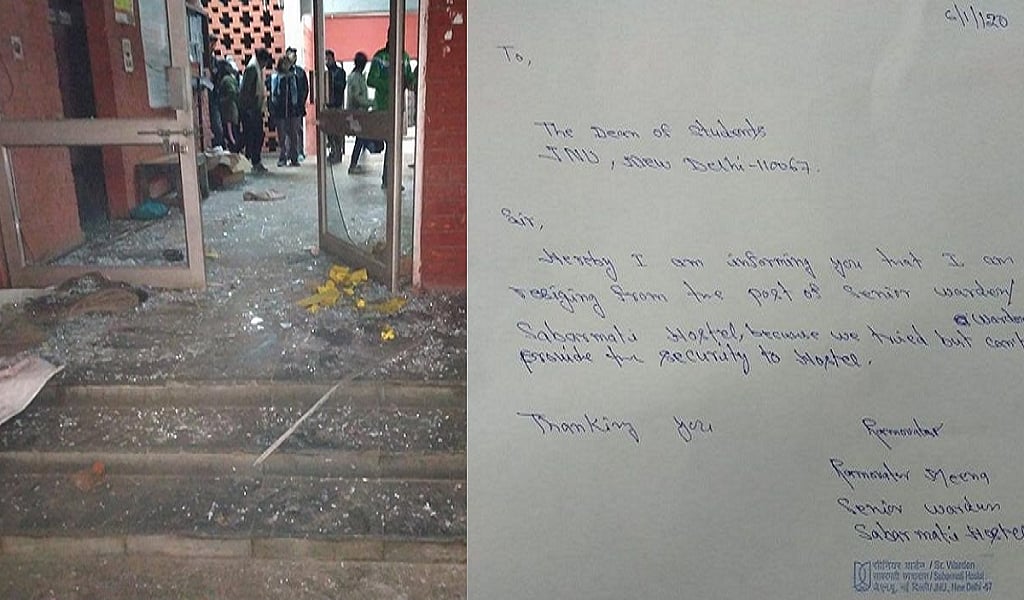 6/1/20
To,
The Dean of Students
JNU, New Delhi-110067.
Sir,
Hereby I am informing you that I am
resiging from the post of Senior warden/
warden
Sabarmati Hostel, because we tried but cant
provide the security to Hostel.
Thanking you
Ramavatar
Ramavatar Meena
Senior Warden
Sabarmati Hostel
सीनियर वार्डन / Sr. Warden
साबरमती छात्रावास / Sabarmati Hostel
जे.एन.यू., नई दिल्ली / JNU, New Delhi-67